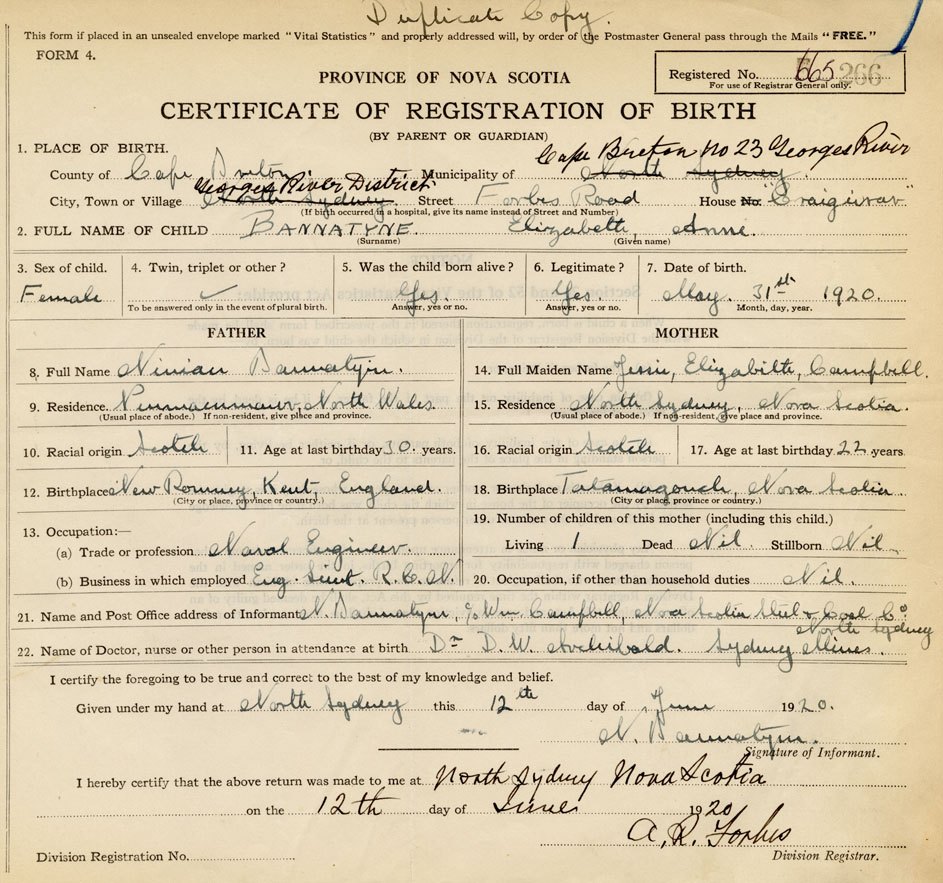 Duplicate Copy.
This form if placed in an unsealed envelope marked "Vital Statistics" and properly addressed will, by order of the Postmaster General pass through the Mails "FREE."
FORM 4.
PROVINCE OF NOVA SCOTIA
Registered No. 665 266
For use of Registrar General only.
CERTIFICATE OF REGISTRATION OF BIRTH
(BY PARENT OR GUARDIAN)
1. PLACE OF BIRTH.
Cape Breton No 23 Georges River
County of Cape Breton Municipality of North Sydney.
Georges River District
City, Town or Village North Sydney. Street Forbes Road House No. "Craigievar"
(If birth occurred in a hospital, give its name instead of Street and Number)
2. FULL NAME OF CHILD BANNATYNE. Elizabeth, Anne.
(Surname) (Given name)
3. Sex of child. 4. Twin, triplet or other? 5. Was the child born alive? 6. Legitimate? 7. Date of birth.
Female Yes. Yes. May. 31st 1920.
To be answered only in the event of plural birth. Answer, yes or no. Answer, yes or no. Month, day, year.
FATHER MOTHER
8. Full Name Ninian Bannatyne. 14. Full Maiden Name Jessie, Elizabeth, Campbell.
9. Residence. Penmaenmawr, North Wales. 15. Residence North Sydney, Nova Scotia.
(Usual place of abode.) If non-resident, give place and province. (Usual place of abode.) If non-resident, give place and province.
10. Racial origin Scotch 11. Age at last birthday 30. years. 16. Racial origin Scotch 17. Age at last birthday 22 years.
12. Birthplace New Romney, Kent, England. 18. Birthplace Tatamagouch, Nova Scotia.
(City or place, province or country.) (City or place, province or country.)
13. Occupation:— 19. Number of children of this mother (including this child.)
(a) Trade or profession Naval Engineer. Living 1 Dead Nil. Stillborn Nil.
(b) Business in which employed Eng. Lieut. R.C.N. 20. Occupation, if other than household duties Nil.
21. Name and Post Office address of Informant N. Bannatyne, c/o Wm Campbell, Nova Scotia Steel & Coal Co
North Sydney
22. Name of Doctor, nurse or other person in attendance at birth Dr D.W. Archibald. Sydney Mines.
I certify the foregoing to be true and correct to the best of my knowledge and belief.
Given under my hand at North Sydney this 12th day of June 1920.
N. Bannatyne.
Signature of Informant.
I hereby certify that the above return was made to me at North Sydney Nova Scotia
on the 12th day of June 1920
A. R. Forbes
Division Registration No. Division Registrar.